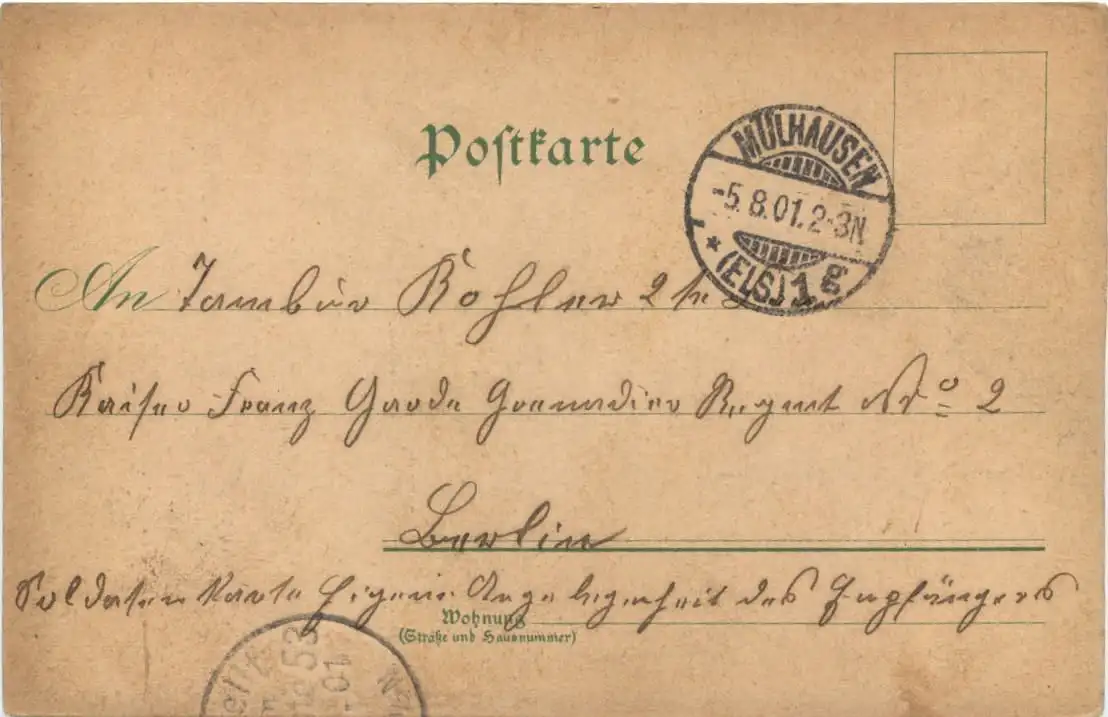 Postkarte
MÜLHAUSEN
-5.8.01.2-3N
* (ELS.) 1 g
An Tambur Kohler 2
Kaiser Franz Garde Grenadier Regmt No 2
Berlin
Soldaten Karte Eigene Angelegenheit des Empfängers
Wohnung
(Straße und Hausnummer)
53